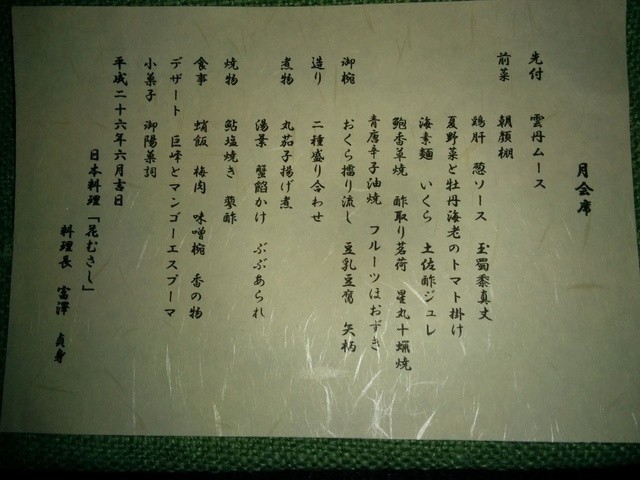 月会席
先付　雲丹ムース
前菜　朝顔棚
鶏肝　葱ソース　玉蜀黍真丈
夏野菜と牡丹海老のトマト掛け
海素麺　いくら　土佐酢ジュレ
鮑香草焼　酢取り茗荷　星丸十蝋焼
青唐辛子油焼　フルーツほおずき
御椀　おくら擂り流し　豆乳豆腐　矢柄
造り　二種盛り合わせ
煮物　丸茄子揚げ煮
湯葉　蟹餡かけ　ぶぶあられ
焼物　鮎塩焼き　蓼酢
食事　蛸飯　梅肉　味噌椀　香の物
デザート　巨峰とマンゴーエスプーマ
小菓子　御陽菓詞
平成二十六年六月吉日
日本料理「花むさし」
料理長　富澤　貞身